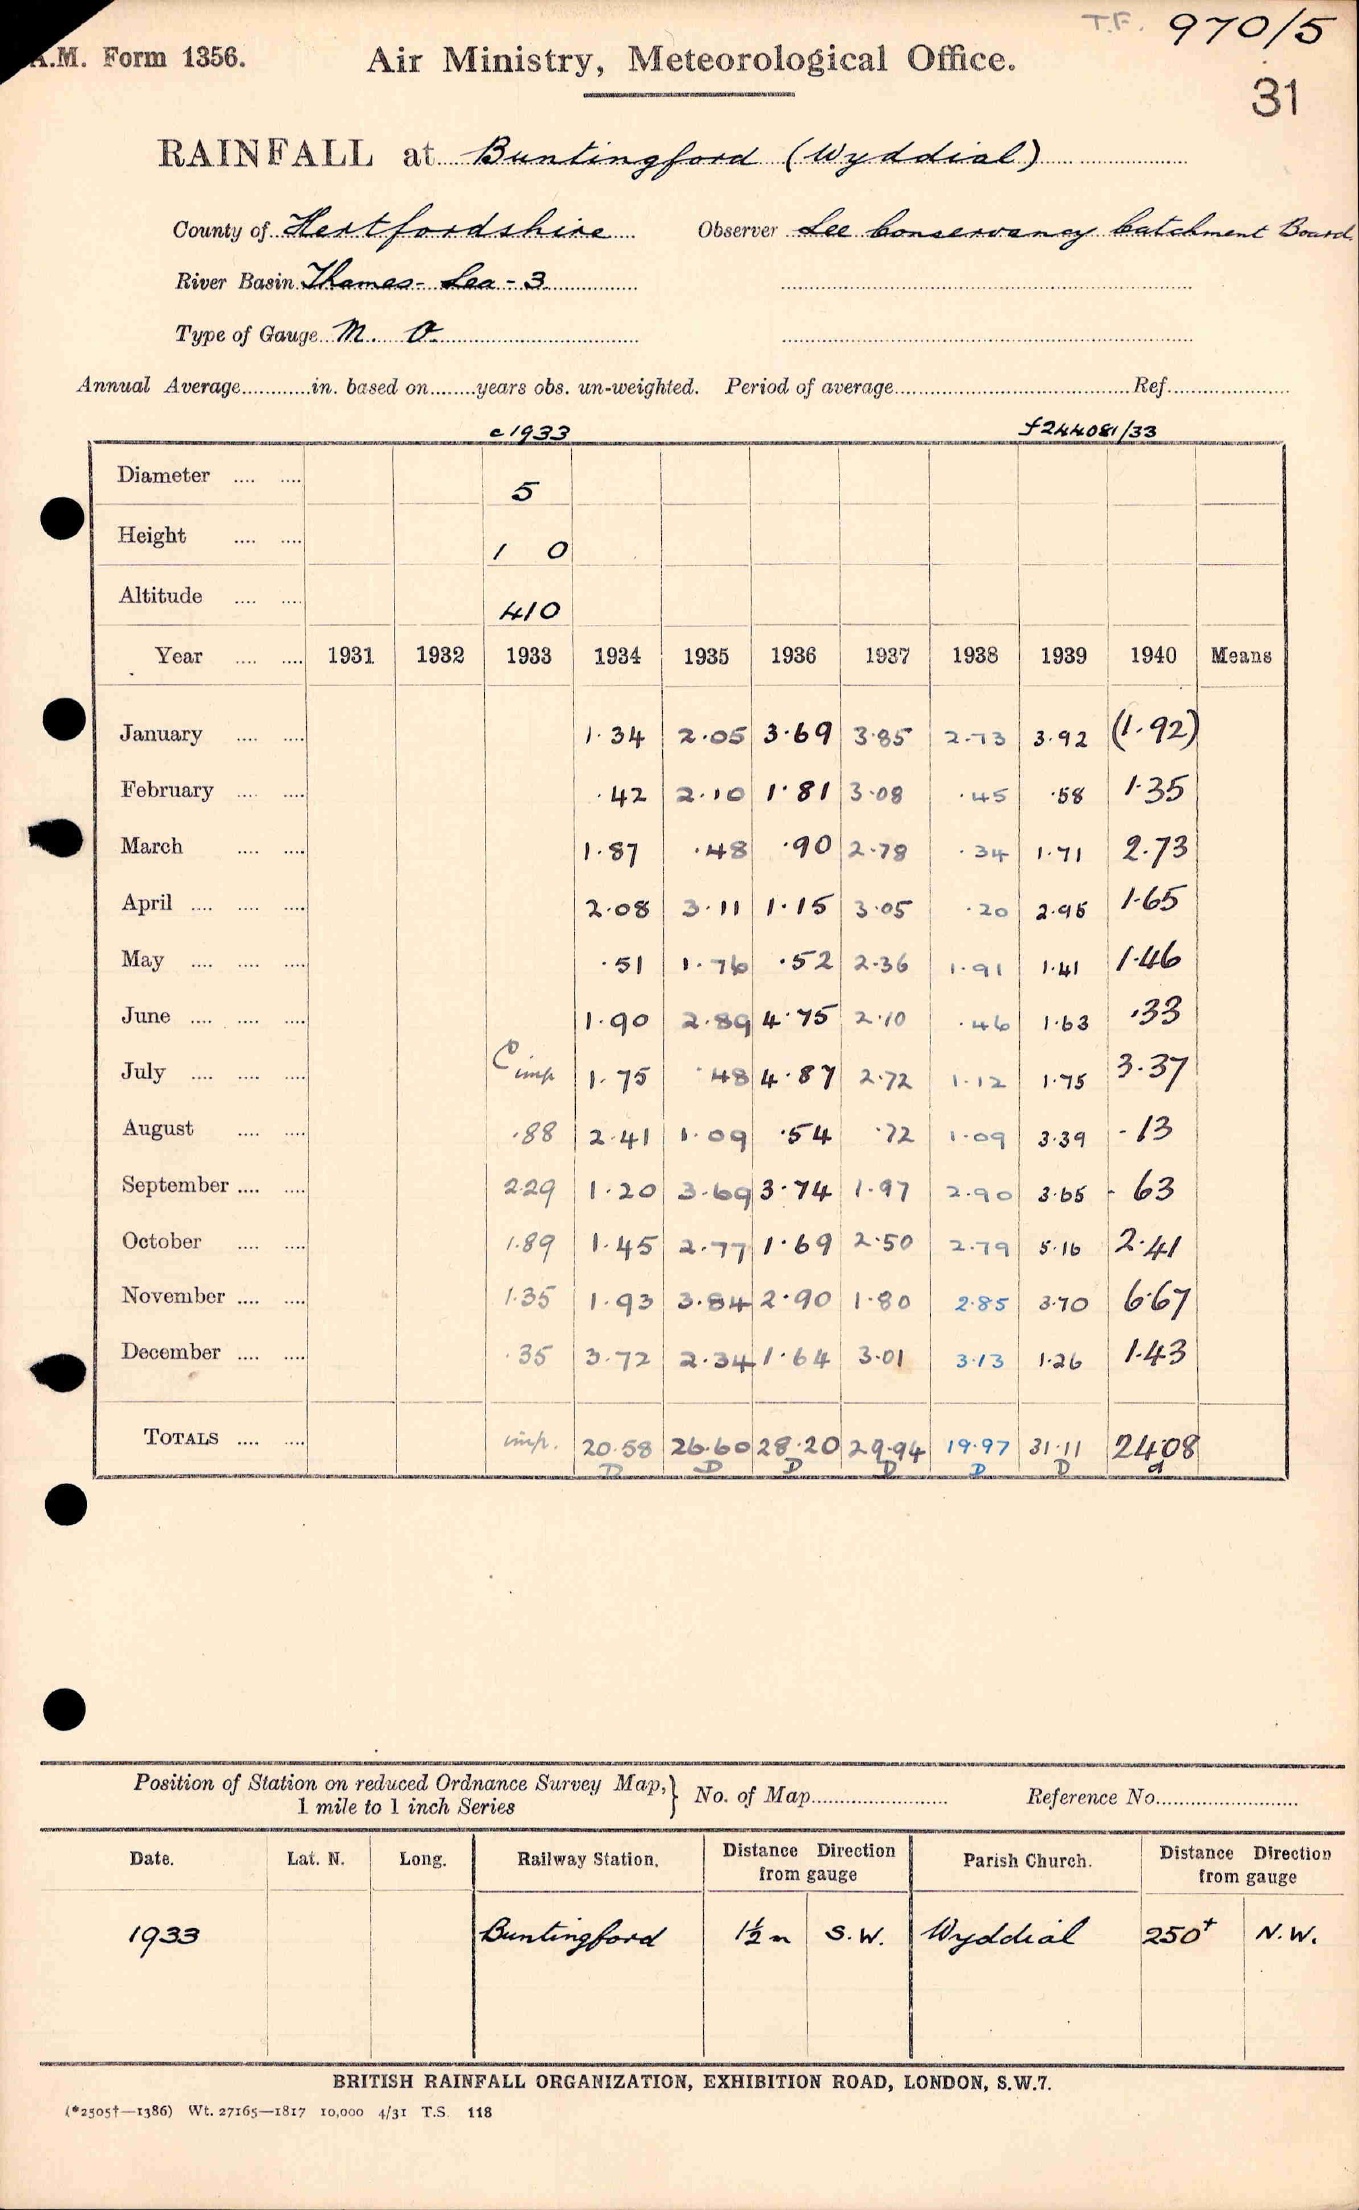 T.F. 970/5
A.M. Form 1356. Air Ministry, Meteorological Office.
31
RAINFALL at Buntingford (Wyddial)
County of Hertfordshire Observer Lee Conservancy Catchment Board.
River Basin Thames - Lea - 3
Type of Gauge M. O.
Annual Average............in. based on........years obs. un-weighted. Period of average.......... Ref..........
c1933 f244081/33
Diameter .... .... 5
Height .... .... 1 0
Altitude .... .... 410
Year .... .... 1931 1932 1933 1934 1935 1936 1937 1938 1939 1940 Means
January .... .... 1.34 2.05 3.69 3.85 2.73 3.92 (1.92)
February .... .... .42 2.10 1.81 3.08 .45 .58 1.35
March .... .... 1.87 .48 .90 2.78 .34 1.71 2.73
April .... .... .... 2.08 3.11 1.15 3.05 .20 2.95 1.65
May .... .... .... .51 1.76 .52 2.36 1.91 1.41 1.46
June .... .... .... 1.90 2.89 4.75 2.10 .46 1.63 .33
July .... .... .... C imp 1.75 .48 4.87 2.72 1.12 1.75 3.37
August .... .... .88 2.41 1.09 .54 .72 1.09 3.39 .13
September .... .... 2.29 1.20 3.69 3.74 1.97 2.90 3.65 .63
October .... .... 1.89 1.45 2.77 1.69 2.50 2.79 5.16 2.41
November .... .... 1.35 1.93 3.84 2.90 1.80 2.85 3.70 6.67
December .... .... .35 3.72 2.34 1.64 3.01 3.13 1.26 1.43
TOTALS .... .... imp. 20.58 26.60 28.20 29.94 19.97 31.11 24.08
D D D D D D d
Position of Station on reduced Ordnance Survey Map, } No. of Map.......... Reference No..........
1 mile to 1 inch Series
Date. Lat. N. Long. Railway Station. Distance Direction from gauge Parish Church. Distance Direction from gauge
1933 Buntingford 1½ m S.W. Wyddial 250+ N.W.
BRITISH RAINFALL ORGANIZATION, EXHIBITION ROAD, LONDON, S.W.7.
(*2505†—1386) Wt. 27165—1817 10,000 4/31 T.S. 118